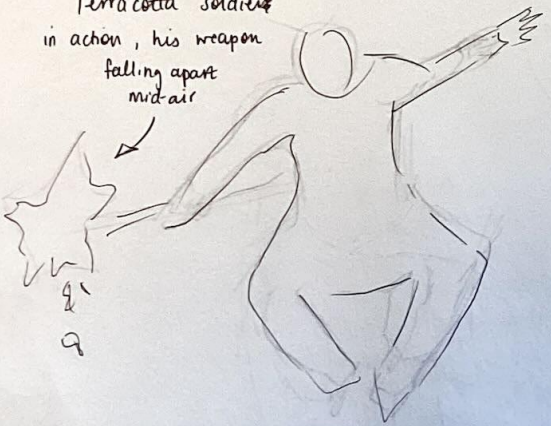 Terracotta soldiers
in action, his weapon
falling apart
mid-air